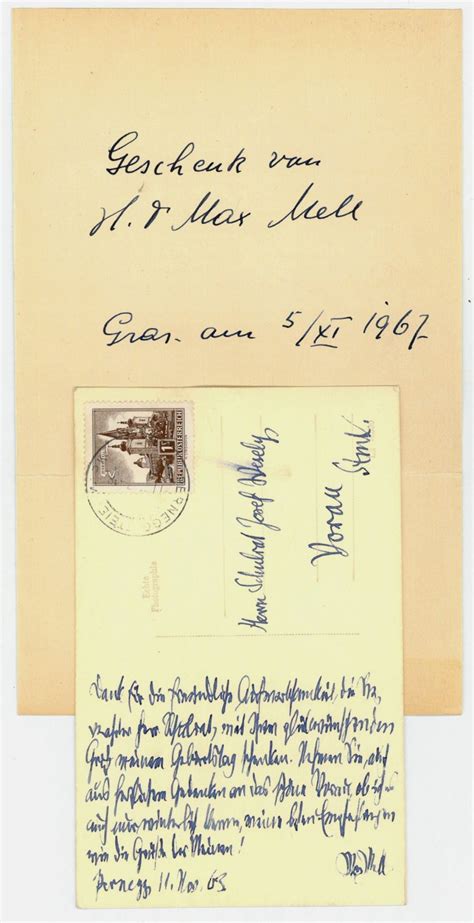 Geschenk von
H. Dr Max Mell
Graz. am 5/XI 1967
1S
REPUBLIK ÖSTERREICH
PERNEGG
Echte
Photographie
Herrn Schulrat Josef Wesely
Vorau Stmk.
Dank für die freundliche Aufmerksamkeit, die Sie,
verehrter Herr Schulrat, mit Ihrem glückwünschenden
Gruß meinem Geburtstag schenken. Nehmen Sie, auch
aus herzlichem Gedenken an das schöne Vorau, ob ich es
auch nur winterlich kenne, meine besten Empfehlungen
wie die Grüße der Meinen!
Pernegg 11. Nov. 63
Max Mell